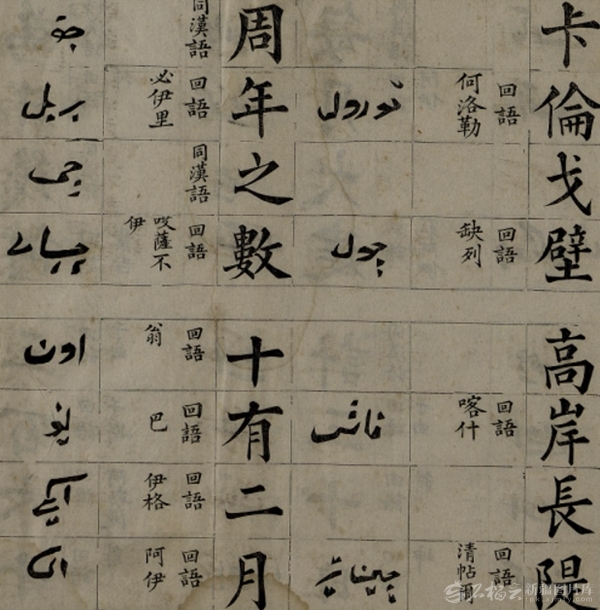 卡倫戈壁高岸長隄
回語
何洛勒
回語
缺列
回語
喀什
回語
清帖爾
قورول
چول
قاش
周年之數十有二月
同漢語
回語
必伊里
同漢語
回語
哎薩不伊
回語
翁
回語
巴
回語
伊格
回語
阿伊
جو
بریل
جی
اون
石榴云
新疆图片库